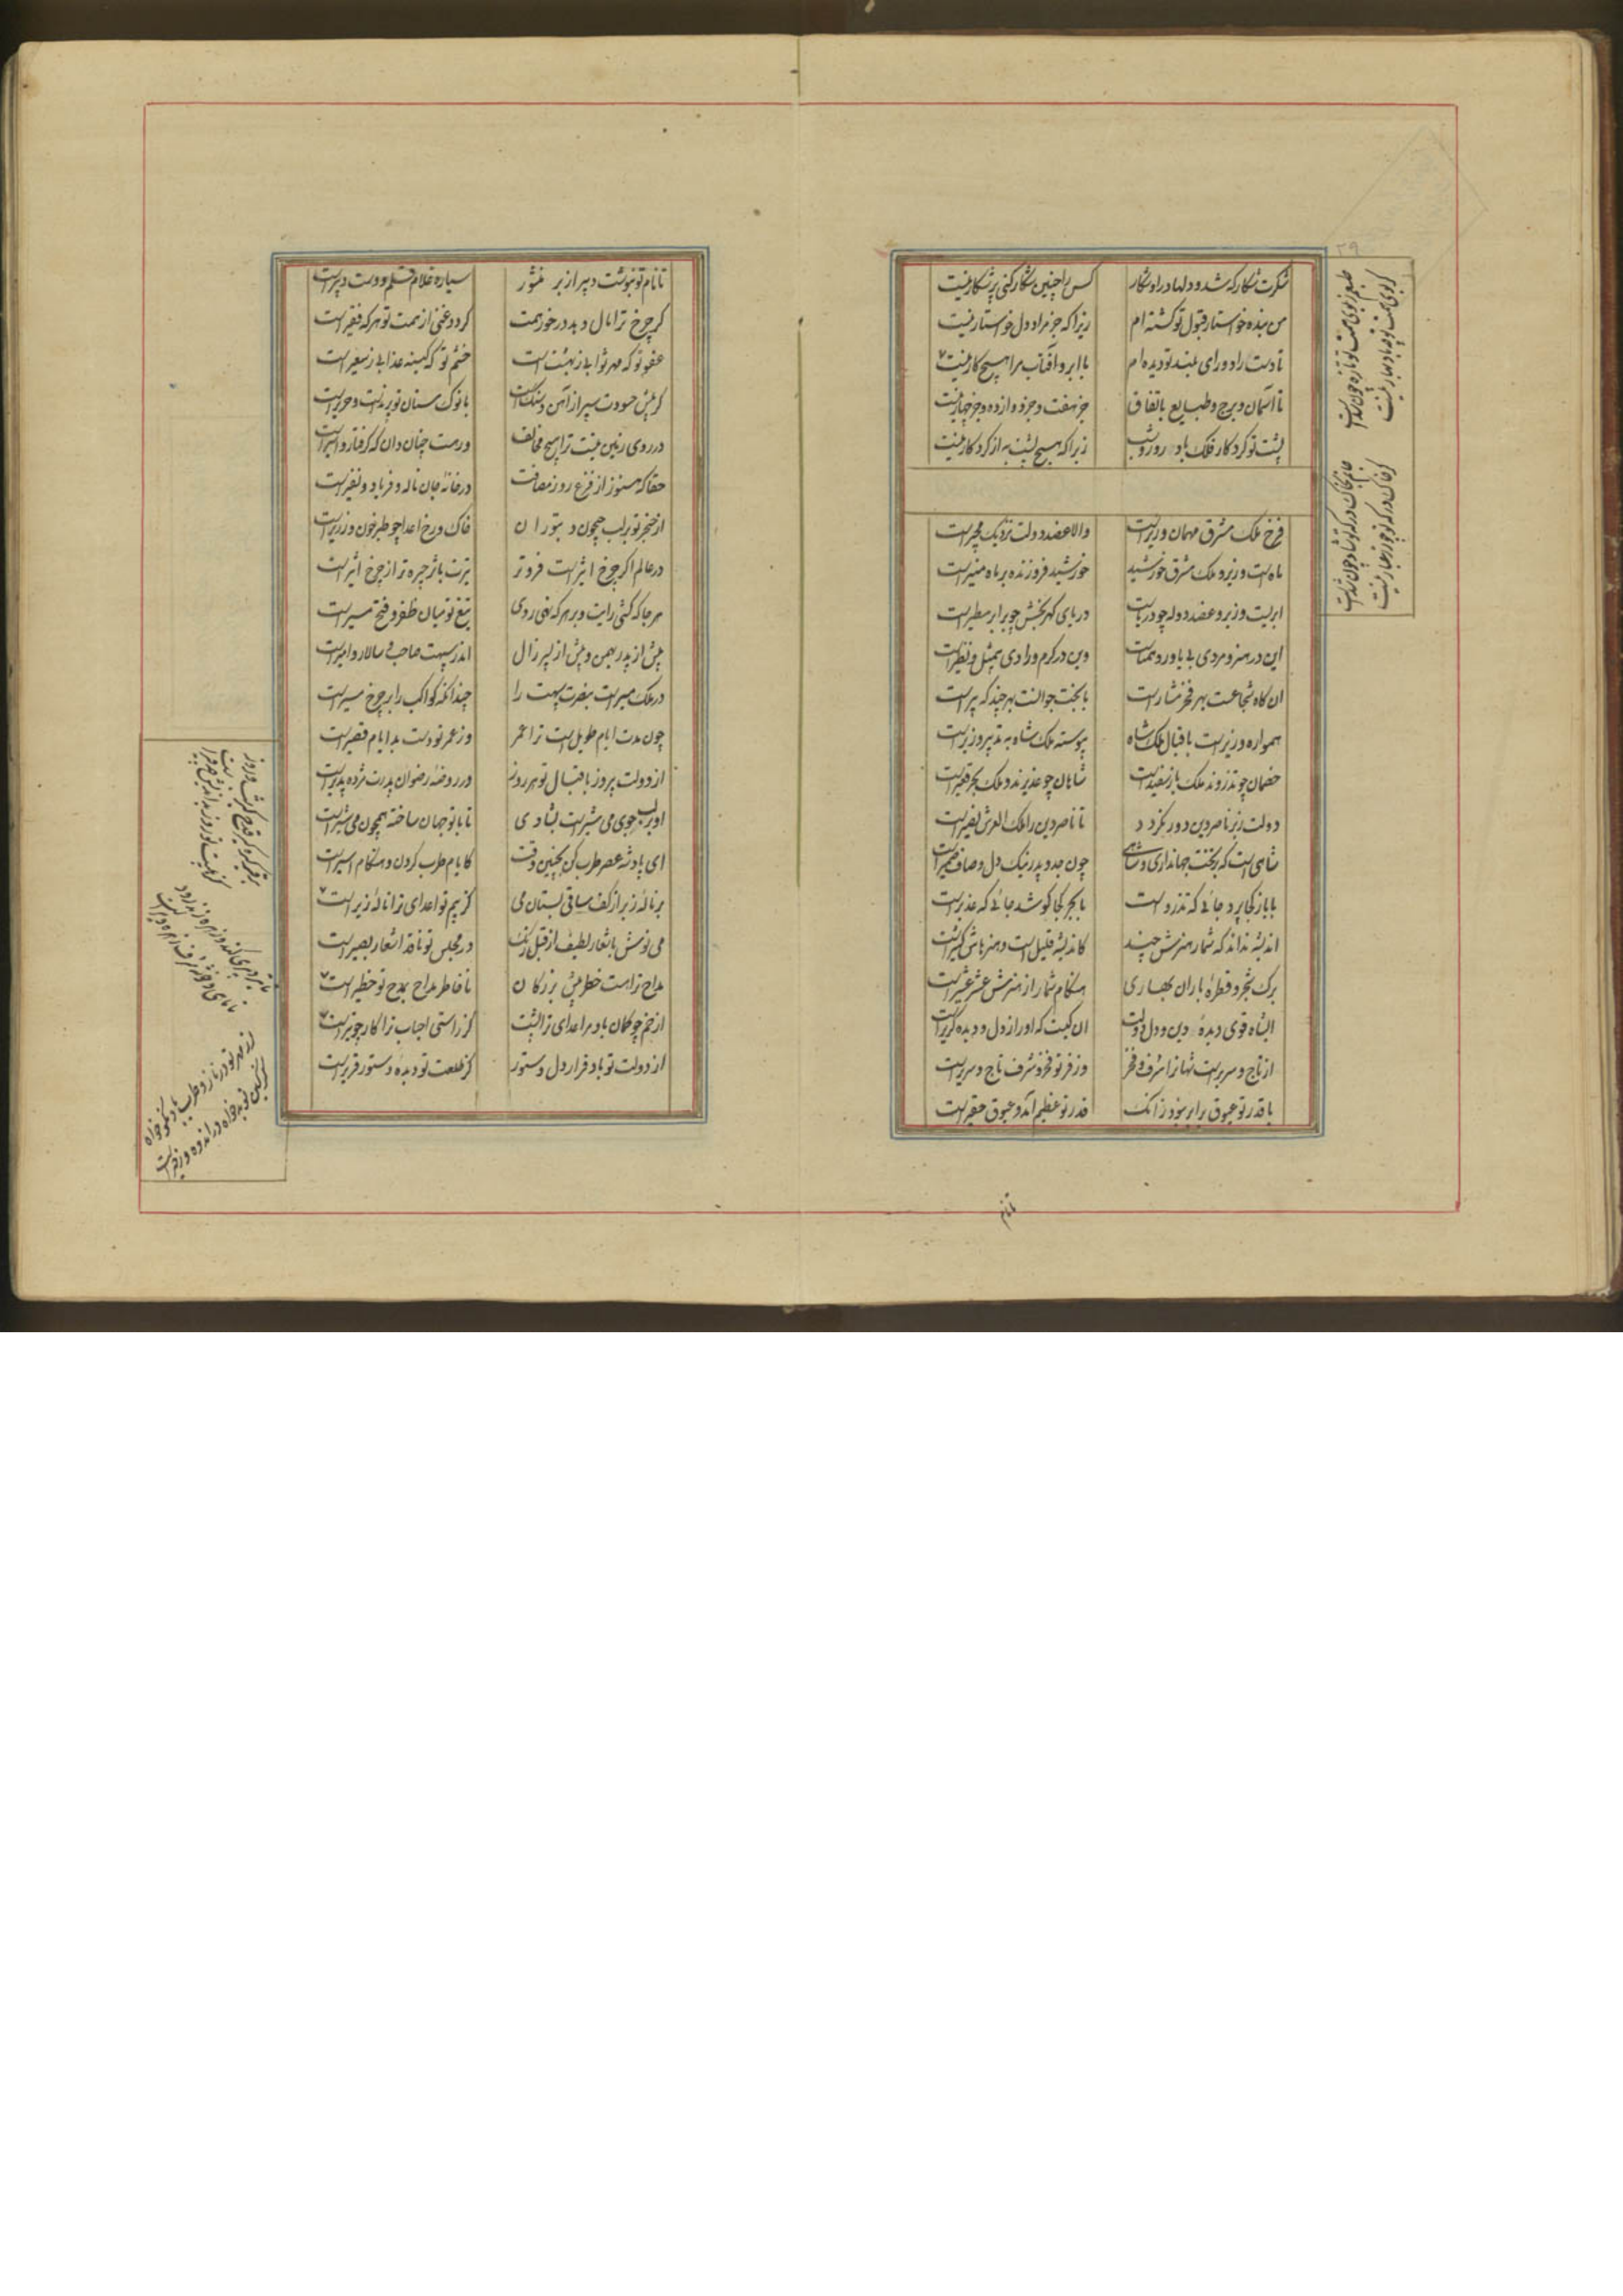 ۲۹
شکرت شکار که شد و دلها در او شکار
کس را چنین شکار کنی پر شکار نیست
من بنده خواستار قبول تو گشته ام
زیرا که جز مراد دل خواستار نیست
تا دست راد و رای بلند تو دیده ام
با ابر و آفتاب مرا هیچ کار نیست
تا آسمان و برج و طبایع باتفاق
جز هفت و جز دوازده و جز چهار نیست
پشت تو کردکار فلک باد روز و شب
زیرا که هیچ پشت به از کردکار نیست
فرخ ملک مشرق مهمان وزیر است
والا عضد دولت نزدیک مجیر است
ماه است وزیر و ملک مشرق خورشید
خورشید فروزنده بر ماه منیر است
ابر است وزیر و عضد دوله چو دریاست
دریای کهربخش چو بر ابر مطیر است
این در هنر و مردی بی یاور و همتاست
وین در کرم و رادی بی مثل و نظیر است
ان کاه شجاعت بهر فخر مشار است
با بخت جوانست بهر چند که پیر است
همواره وزیر است باقبال ملک شاه
پیوسته ملک شاه به تدبیر وزیر است
خصمان چو تذروند ملک باز سفید است
شاهان چو غدیرند و ملک بحر قعیر است
دولت ز بر ناصر دین دور نکردد
تا ناصر دین را ملک العرش نصیر است
شاهی است که بر تخت جهانداری و شاهی
چون جد و پدر نیک دل و صاف ضمیر است
با باز کجا پرد جائی که تذرو است
با بحر کجا کوشد جائی که غدیر است
اندیشه نداند که شمار هنرش چند
کاندیشه قلیل است و هنرهاش کثیر است
برک شجر و قطره باران بهاری
هنکام شمار از هنرش عشر عشیر است
ای شاه قوی دیده دین و دل دولت
ان کیست که او را ز دل و دیده گزیر است
از تاج و سریر است شهانرا شرف و فخر
وز فر تو فخر و شرف تاج و سریر است
با قدر تو عیوق برابر نبود زانک
قدر تو عظیم آمد و عیوق حقیر است
تا نام
تا نام تو بنوشت دبیر از بر منشور
سیاره غلام قلم و دست دبیر است
کر چرخ ترا مال دهد در خور همت
کردد غنی از همت تو هر که فقیر است
عفو تو که مهر ثوابی ز بهشت است
خشم تو که کمینه عذابی ز سعیر است
کر پیش حسودت سپر از آهن و سنک است
با نوک سنان تو پرند است و حریر است
در روی زمین نیست ترا هیچ مخالف
ور هست چنان دان که کرفتار و اسیر است
حقا که هنوز از فزع روز مصافت
در خانه خان ناله و فریاد و نفیر است
از خنجر تو بر لب جیحون و بتوران
خاک و رخ اعدا چو طبرخون و زریر است
در عالم اکر چرخ اثیر است فروتر
تیرت باثر چیره تر از چرخ اثیر است
هر جا که کشی رایت و بر هر که نهی روی
تیغ تو میان ظفر و فتح مسیر است
پیش از پدر بهمن و پیش از پسر زال
اندر سپهت صاحب و سالار و امیر است
در ملک مسیر است بنصرت سپهت را
چندانکه کواکب را بر چرخ مسیر است
چون مدت ایام طویل است ترا عمر
وز عمر تو دست بد ایام قصیر است
از دولت پیروز باقبال تو هر روز
در روضه رضوان پدرت مژده پذیر است
او بر لب جوی می شیر است بشادی
تا با تو جهان ساخته همچون می و شیر است
ای پادشه عصر طرب کن بچنین وقت
کایام طرب کردن و هنکام اسیر است
بر ناله زیر از کف ساقی بستان می
کز بیم تو اعدای ترا ناله زیر است
می نوش باشعار لطیف از قبل آنک
در مجلس تو ناقد اشعار بصیر است
مداح تراست خطر پیش بزرکان
تا خاطر مداح بمدح تو خطیر است
از خم چو کمان باد مر اعدای ترا پشت
کز راستی احباب ترا کار چو تیر است
از دولت تو باد قرار دل دستور
کز طلعت تو دیده دستور قریر است